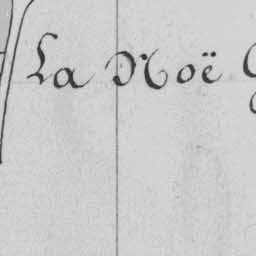 La Noë